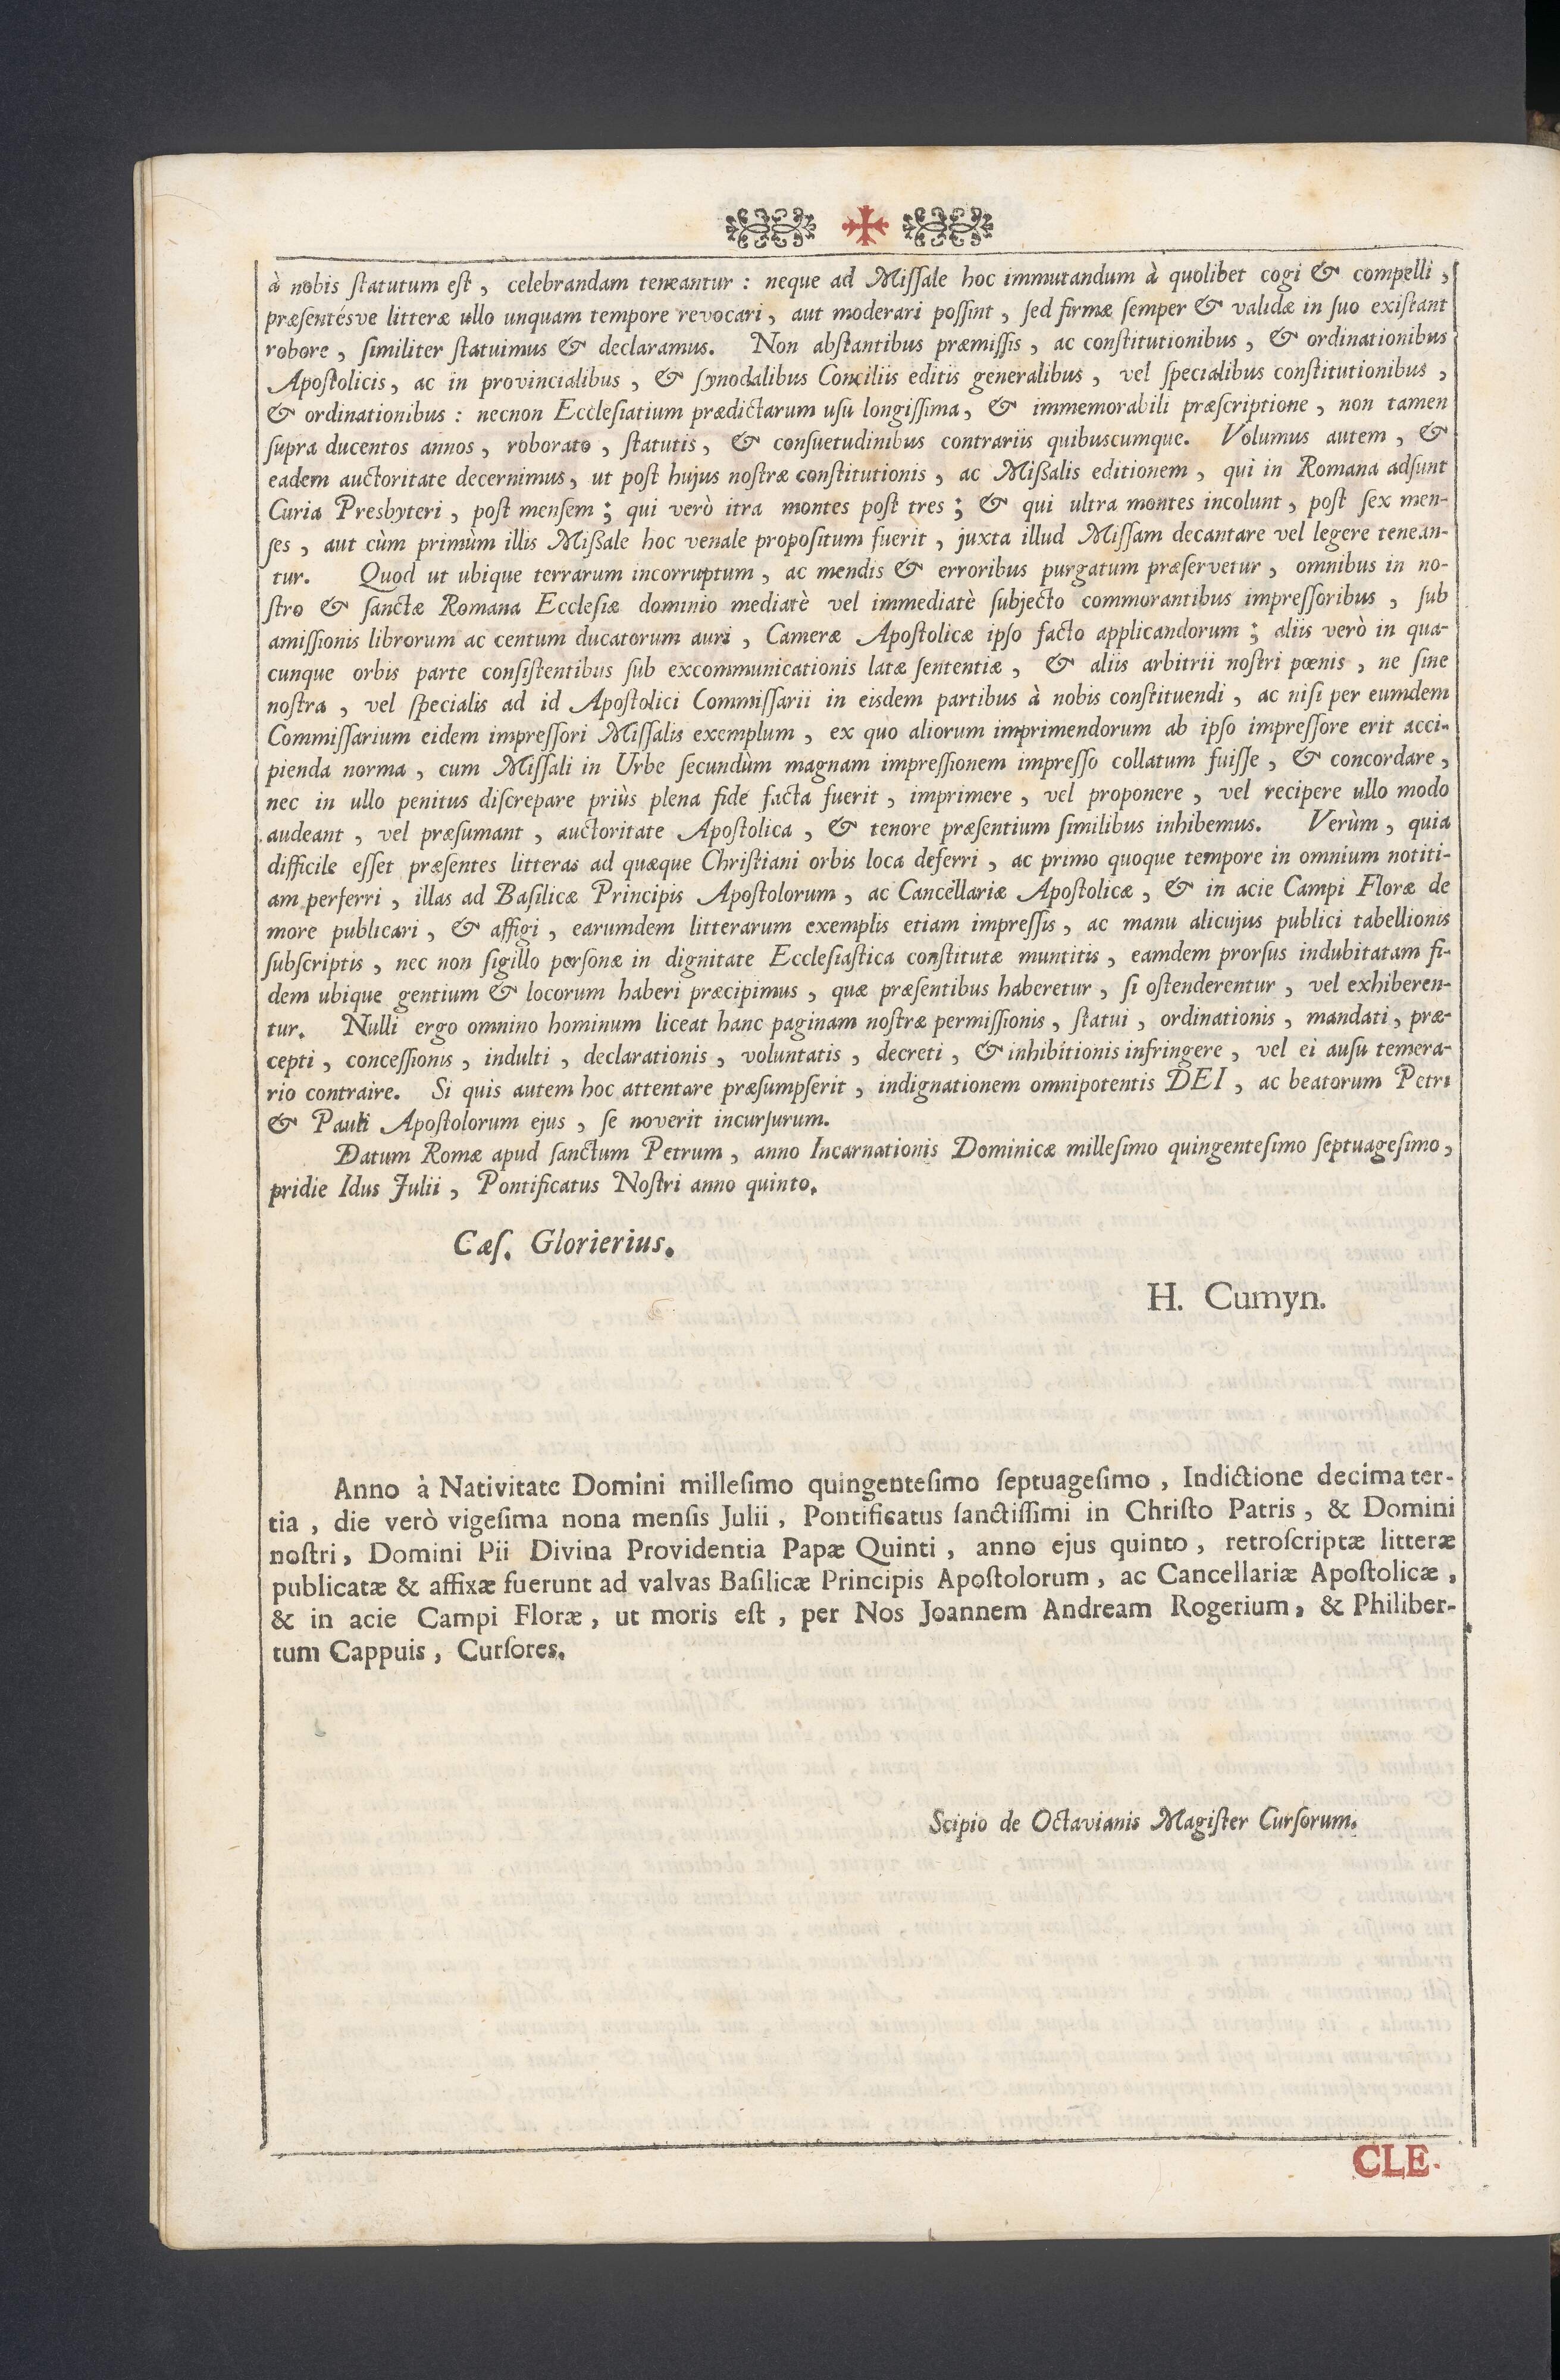 à nobis ſtatutum eſt, celebrandam teneantur : neque ad Miſſale hoc immutandum à quolibet cogi & compelli,
præſentésve litteræ ullo unquam tempore revocari, aut moderari poſſint, ſed firmæ ſemper & validæ in ſuo exiſtant
robore, ſimiliter ſtatuimus & declaramus. Non abſtantibus præmiſſis, ac conſtitutionibus, & ordinationibus
Apoſtolicis, ac in provincialibus, & ſynodalibus Conciliis editis generalibus, vel ſpecialibus conſtitutionibus,
& ordinationibus : necnon Eccleſiatium prædictarum uſu longiſſima, & immemorabili præſcriptione, non tamen
ſupra ducentos annos, roborato, ſtatutis, & conſuetudinibus contrariis quibuscumque. Volumus autem, &
eadem auctoritate decernimus, ut poſt hujus noſtræ conſtitutionis, ac Miſſalis editionem, qui in Romana adſunt
Curia Presbyteri, poſt menſem; qui verò itra montes poſt tres; & qui ultra montes incolunt, poſt ſex men-
ſes, aut cùm primùm illis Miſſale hoc venale propoſitum fuerit, juxta illud Miſſam decantare vel legere tenean-
tur. Quod ut ubique terrarum incorruptum, ac mendis & erroribus purgatum præſervetur, omnibus in no-
ſtro & ſanctæ Romana Eccleſiæ dominio mediatè vel immediatè ſubjecto commorantibus impreſſoribus, ſub
amiſſionis librorum ac centum ducatorum auri, Cameræ Apoſtolicæ ipſo facto applicandorum; aliis verò in qua-
cunque orbis parte conſiſtentibus ſub excommunicationis latæ ſententiæ, & aliis arbitrii noſtri pœnis, ne ſine
noſtra, vel ſpecialis ad id Apoſtolici Commiſſarii in eisdem partibus à nobis conſtituendi, ac niſi per eumdem
Commiſſarium eidem impreſſori Miſſalis exemplum, ex quo aliorum imprimendorum ab ipſo impreſſore erit acci-
pienda norma, cum Miſſali in Urbe ſecundùm magnam impreſſionem impreſſo collatum fuiſſe, & concordare,
nec in ullo penitus diſcrepare priùs plena fide facta fuerit, imprimere, vel proponere, vel recipere ullo modo
audeant, vel præſumant, auctoritate Apoſtolica, & tenore præſentium ſimilibus inhibemus. Verùm, quia
difficile eſſet præſentes litteras ad quæque Chriſtiani orbis loca deferri, ac primo quoque tempore in omnium notiti-
am perferri, illas ad Baſilicæ Principis Apoſtolorum, ac Cancellariæ Apoſtolicæ, & in acie Campi Floræ de
more publicari, & affigi, earumdem litterarum exemplis etiam impreſſis, ac manu alicujus publici tabellionis
ſubſcriptis, nec non ſigillo perſonæ in dignitate Eccleſiaſtica conſtitutæ muntitis, eamdem prorſus indubitatam fi-
dem ubique gentium & locorum haberi præcipimus, quæ præſentibus haberetur, ſi oſtenderentur, vel exhiberen-
tur. Nulli ergo omnino hominum liceat hanc paginam noſtræ permiſſionis, ſtatui, ordinationis, mandati, præ-
cepti, conceſſionis, indulti, declarationis, voluntatis, decreti, & inhibitionis infringere, vel ei auſu temera-
rio contraire. Si quis autem hoc attentare præſumpſerit, indignationem omnipotentis DEI, ac beatorum Petri
& Pauli Apoſtolorum ejus, ſe noverit incurſurum.
Datum Romæ apud ſanctum Petrum, anno Incarnationis Dominicæ milleſimo quingenteſimo ſeptuageſimo,
pridie Idus Julii, Pontificatus Noſtri anno quinto.
Cæſ. Glorierius.
H. Cumyn.
Anno à Nativitate Domini milleſimo quingenteſimo ſeptuageſimo, Indictione decima ter-
tia, die verò vigeſima nona menſis Julii, Pontificatus ſanctiſſimi in Chriſto Patris, & Domini
noſtri, Domini Pii Divina Providentia Papæ Quinti, anno ejus quinto, retroſcriptæ litteræ
publicatæ & affixæ fuerunt ad valvas Baſilicæ Principis Apoſtolorum, ac Cancellariæ Apoſtolicæ,
& in acie Campi Floræ, ut moris eſt, per Nos Joannem Andream Rogerium, & Philiber-
tum Cappuis, Curſores.
Scipio de Octavianis Magiſter Curſorum.
CLE.